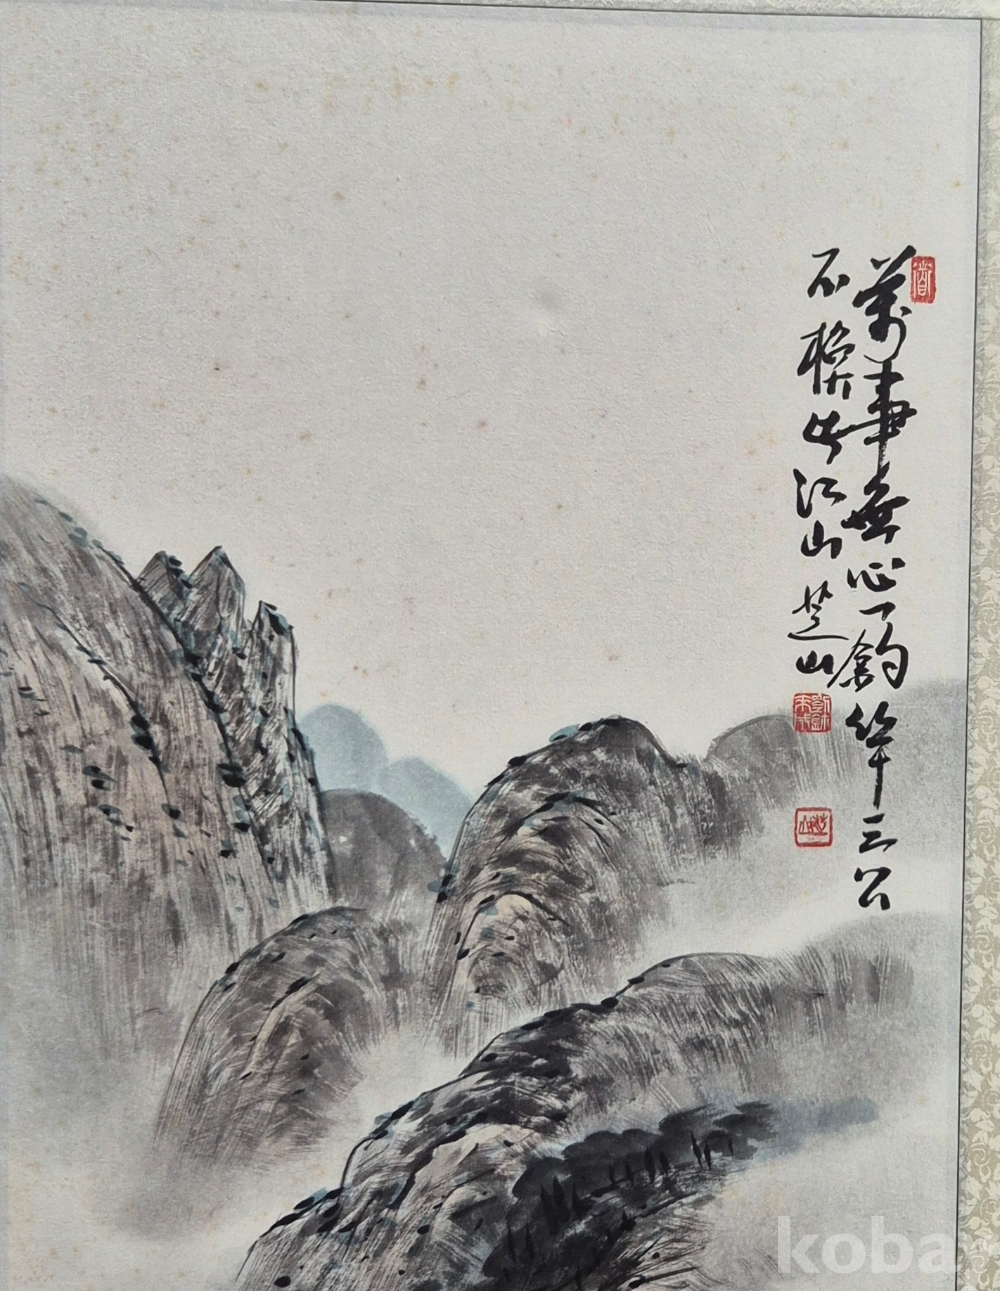 萬事無心一釣竿三公
不換此江山 芝山
koba